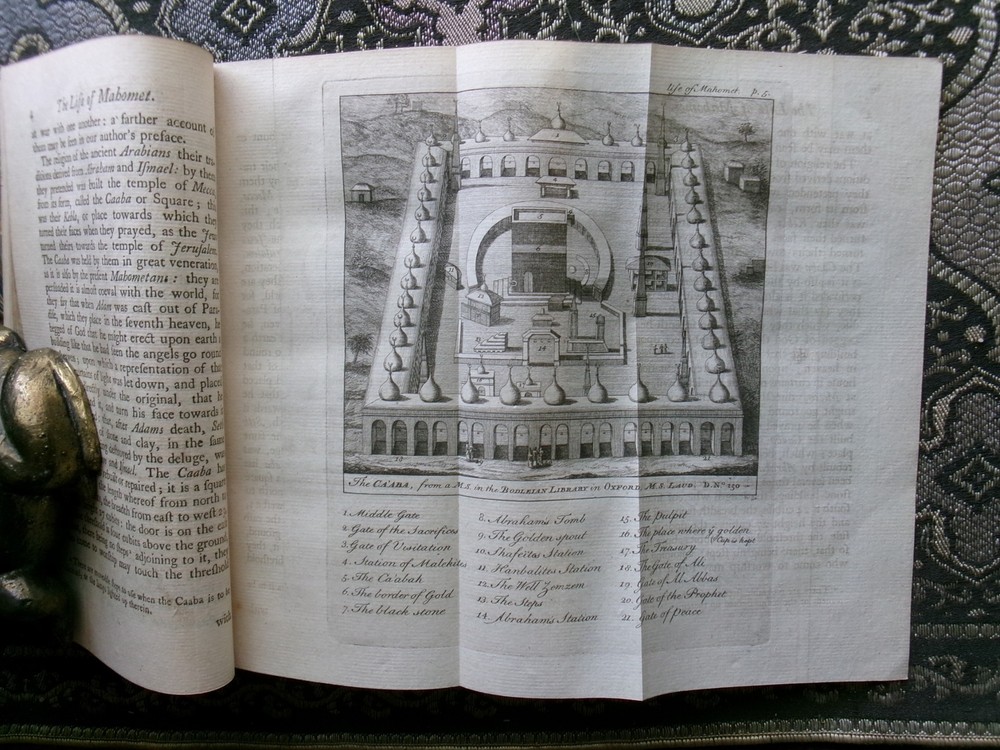 4
The Life of Mahomet.
at war with one another; a farther account of
them may be seen in our author's preface.
The religion of the ancient Arabians their tra-
ditions derived from Abraham and Ismael: by them
they pretended was built the temple of Mecca
from its form, called the Caaba or Square; this
was their Kebla, or place towards which they
turned their faces when they prayed, as the Jews
turned theirs towards the temple of Jerusalem.
The Caaba was held by them in great veneration,
as it is also by the present Mahometans: they are
persuaded it is almost coeval with the world, for
they say that when Adam was cast out of Para-
dise, which they place in the seventh heaven, he
begged of God that he might erect upon earth a
building like that he had seen the angels go round
upon which a representation of that
of light was let down, and placed
under the original, that he
and turn his face towards
that, after Adams death, Seth
of stone and clay, in the same
destroyed by the deluge, was
and Ismael. The Caaba has
or repaired; it is a square
length whereof from north
the breadth from east to west
cubits: the door is on the east
cubits above the ground,
being no steps adjoining to it, they
to worship may touch the threshold
use when the Caaba is to be
the lamps lighted up therein.
with
Life of Mahomet. P. 5.
The CA'ABA, from a M.S. in the BODLEIAN LIBRARY in OXFORD, M.S. LAUD. D. No. 250
1. Middle Gate
2. Gate of the Sacrifices
3. Gate of Visitation
4. Station of Malekites
5. The Ca'abah
6. The border of Gold
7. The black stone
8. Abrahams Tomb
9. The Golden spout
10. Shafeites Station
11. Hanbalites Station
12. The Well Zemzem
13. The Steps
14. Abrahams Station
15. The Pulpit
16. The place where ye golden
Cup is kept
17. The Treasury
18. The Gate of Ali
19. Gate of Al Abbas
20. Gate of the Prophet
21. Gate of Peace